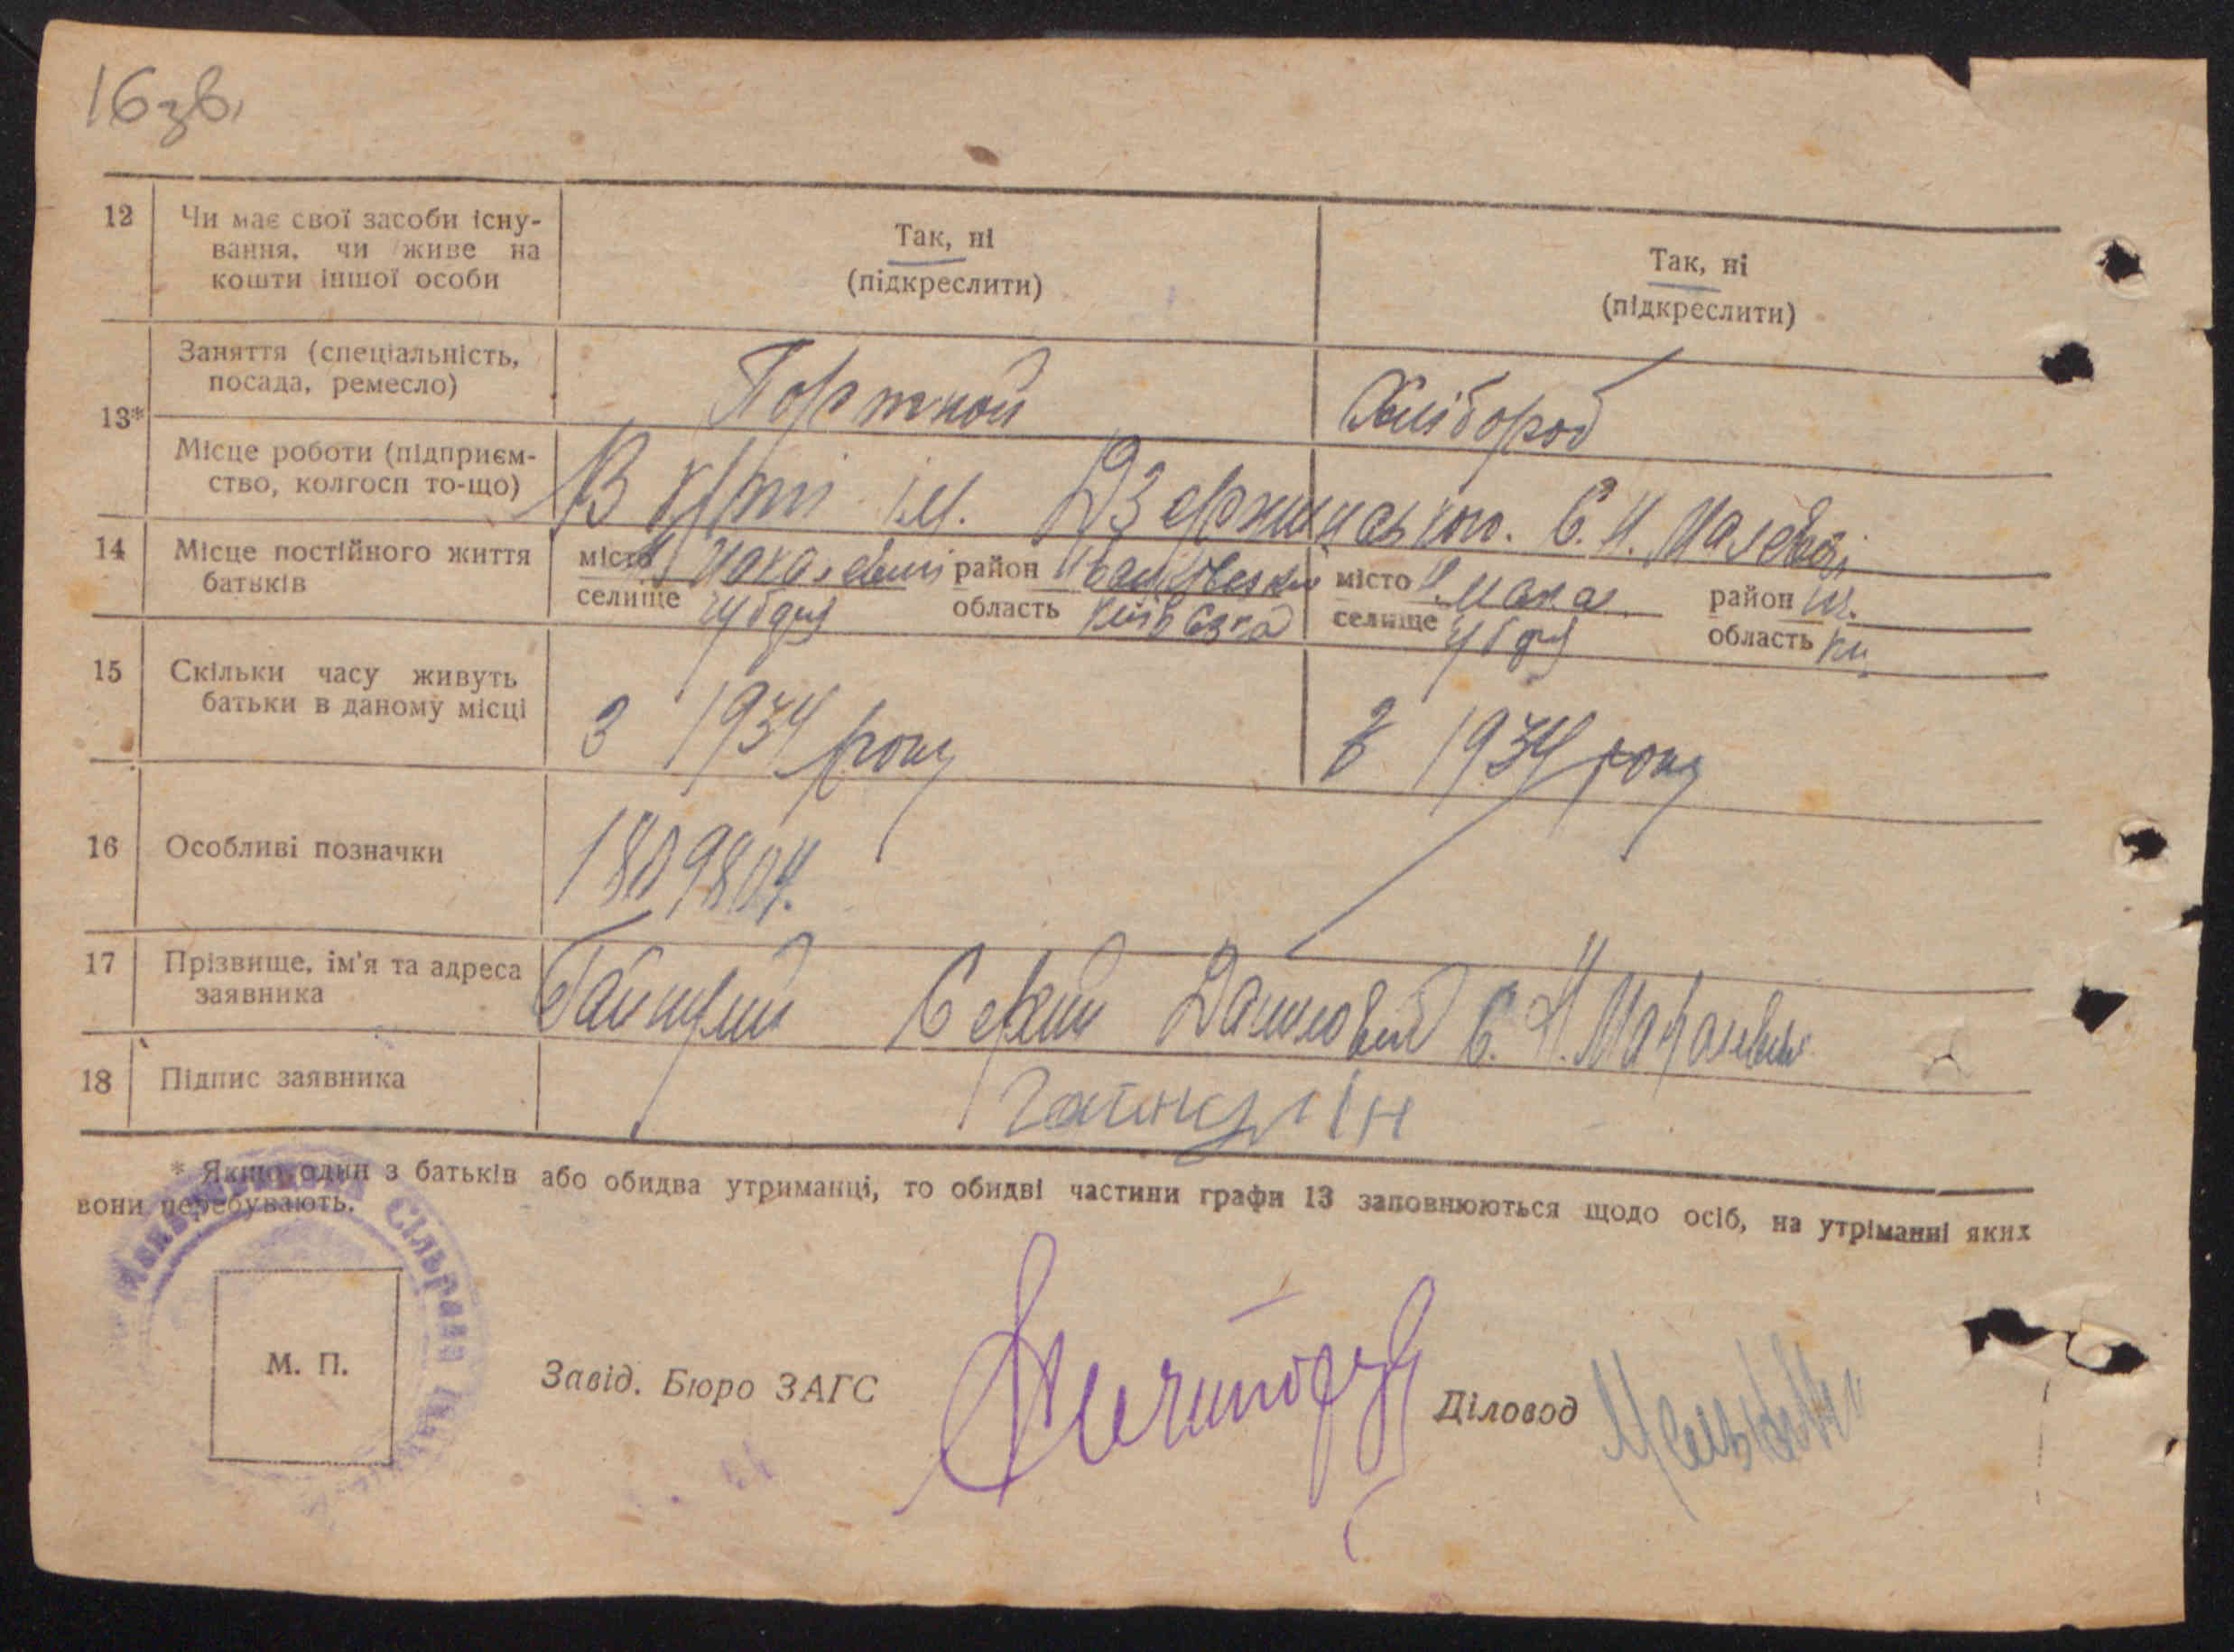 16 зв.
12 Чи має свої засоби існу-
вання, чи живе на
кошти іншої особи
Так, ні
(підкреслити)
Так, ні
(підкреслити)
13*
Заняття (спеціальність,
посада, ремесло)
Портной
Хлібороб
Місце роботи (підприєм-
ство, колгосп то-що)
В ім. Дзержинського. С. Н.
14 Місце постійного життя
батьків
місто район місто район
селище область Київська селище область Ки
15 Скільки часу живуть
батьки в даному місці
З 1934 року
З 1934 року
16 Особливі позначки
1809804.
17 Прізвище, ім'я та адреса
заявника
Сергій Данилович С. Н. Макалевичі
18 Підпис заявника
* Якщо один з батьків або обидва утриманці, то обидві частини графи 13 заповнюються щодо осіб, на утріманні яких
вони перебувають.
Сільрада
М. П.
Завід. Бюро ЗАГС
Діловод